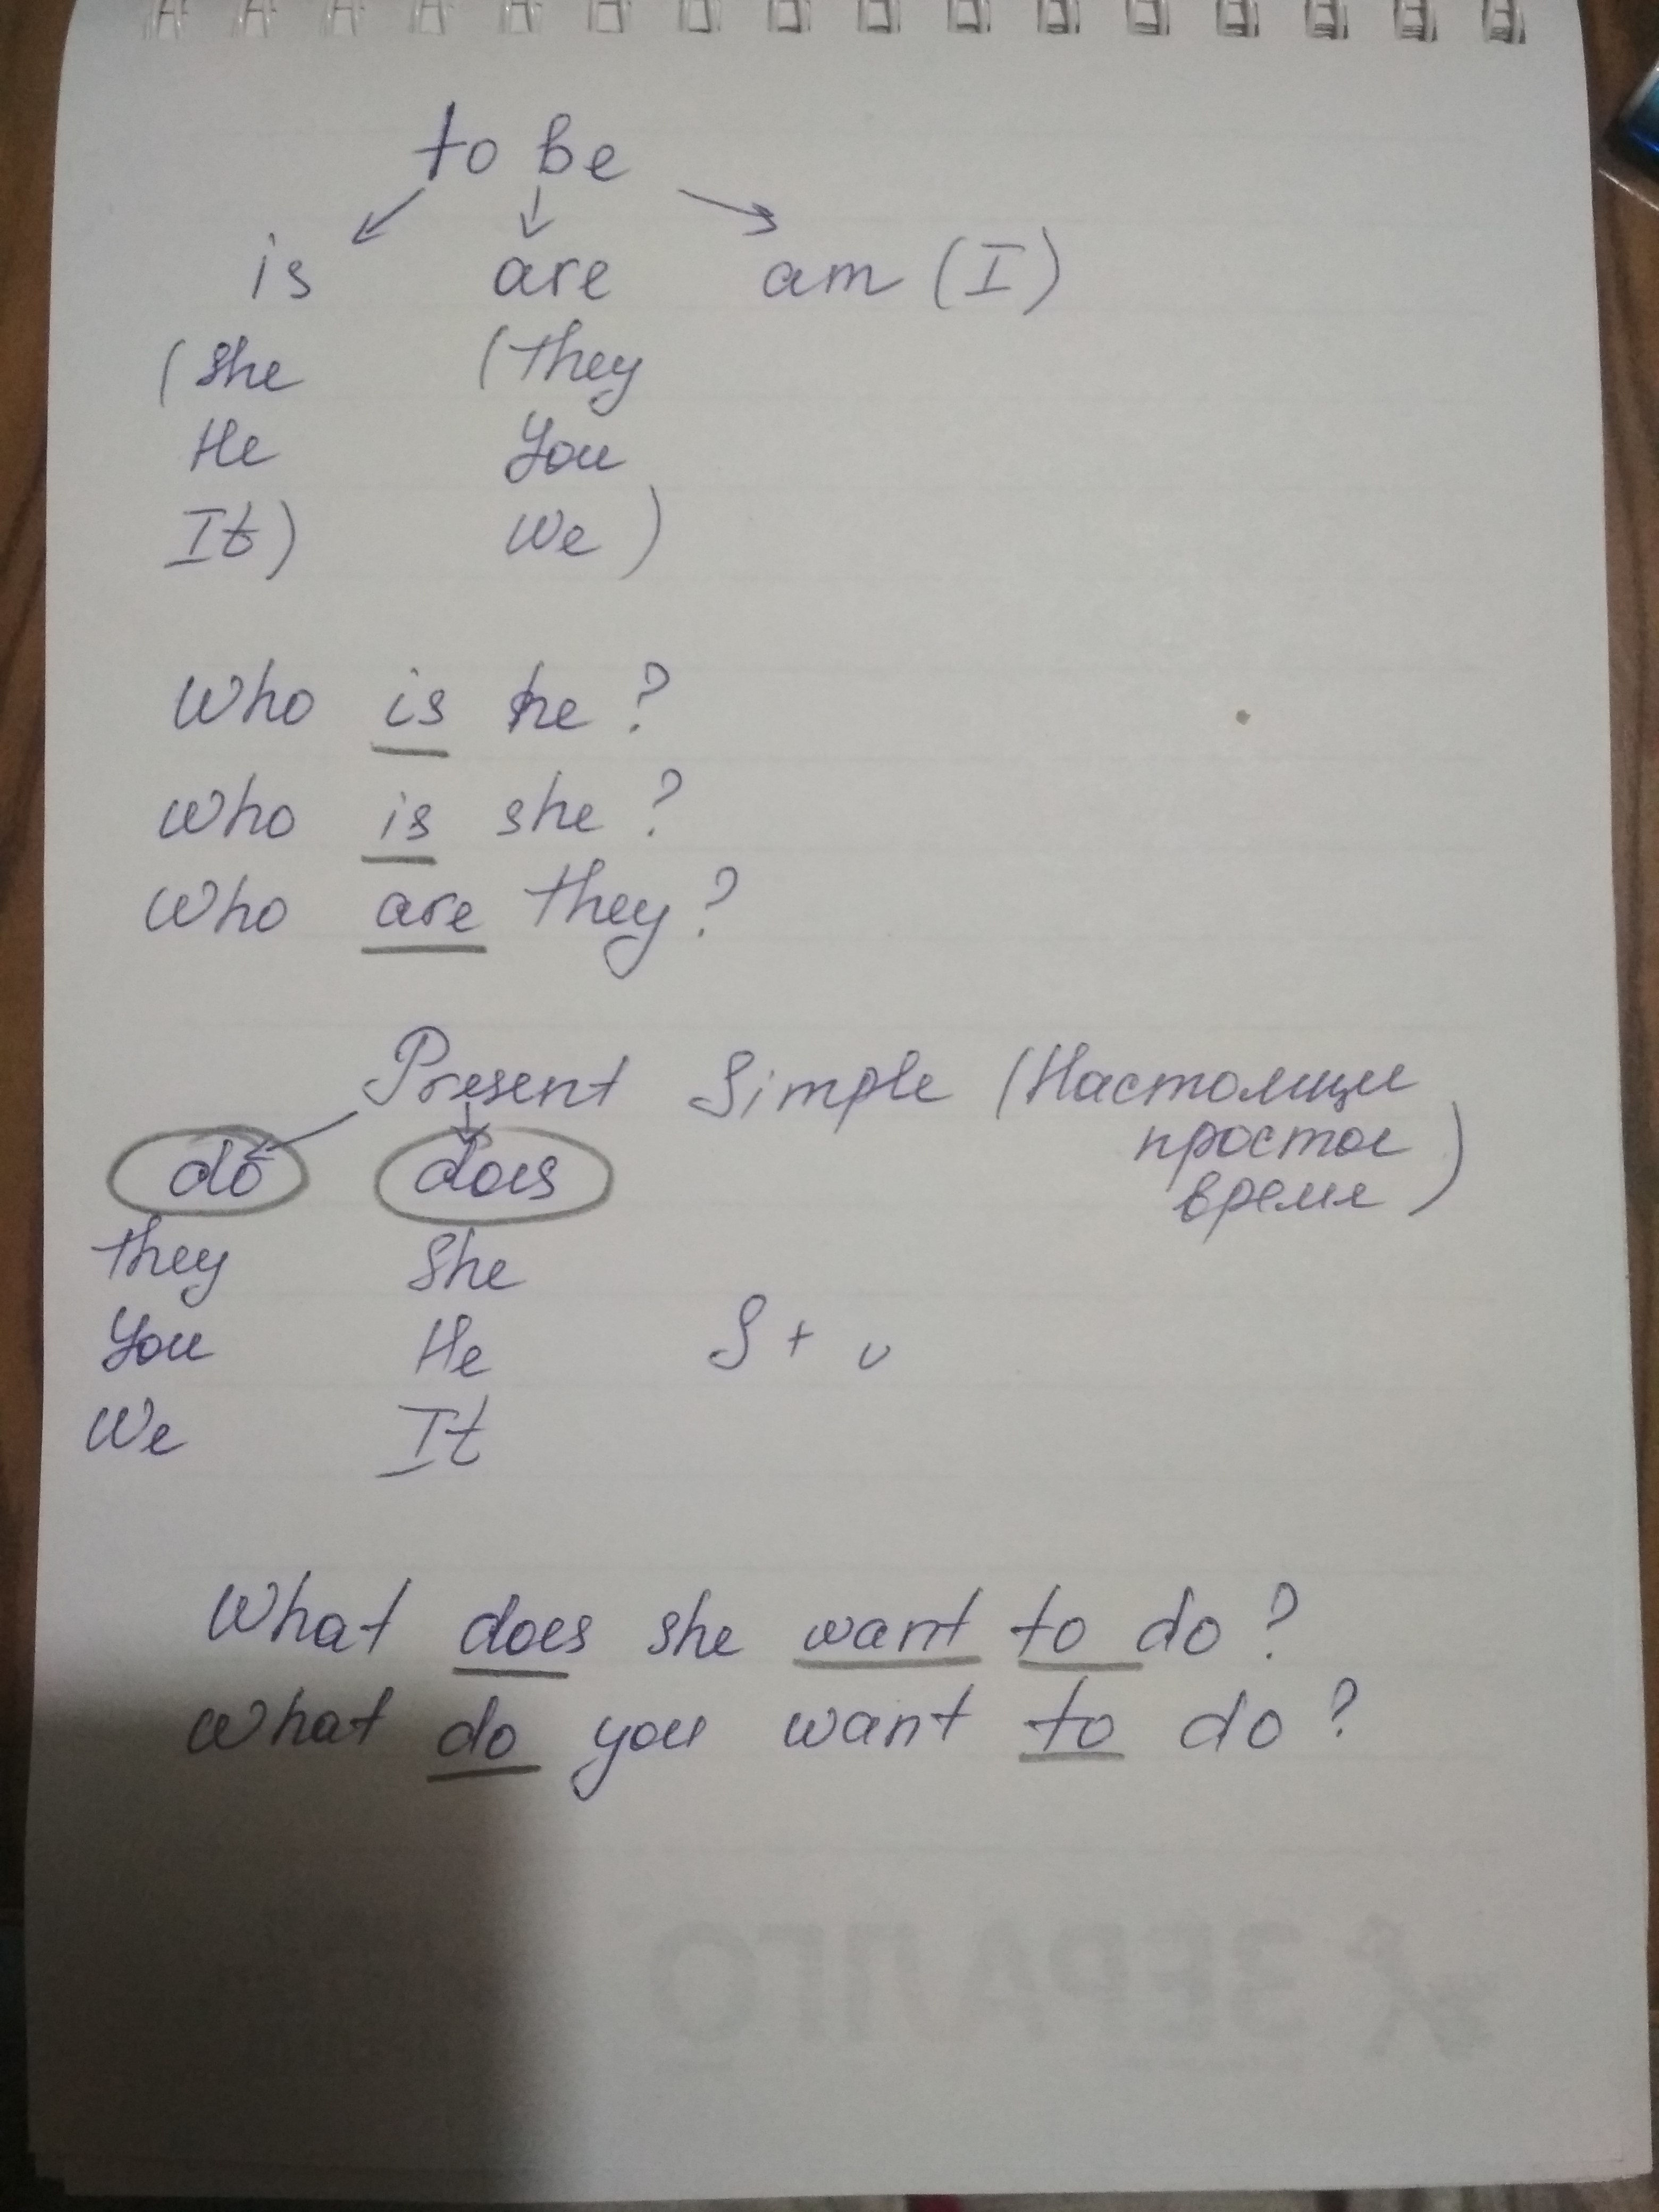 to be
is are am (I)
(She (They
He You
It) We)
Who is he?
Who is she?
Who are they?
Present Simple (Настоящее
простое
время)
do does
They She
You He S + v
We It
What does she want to do?
What do you want to do?
ЗЕРАЛГО